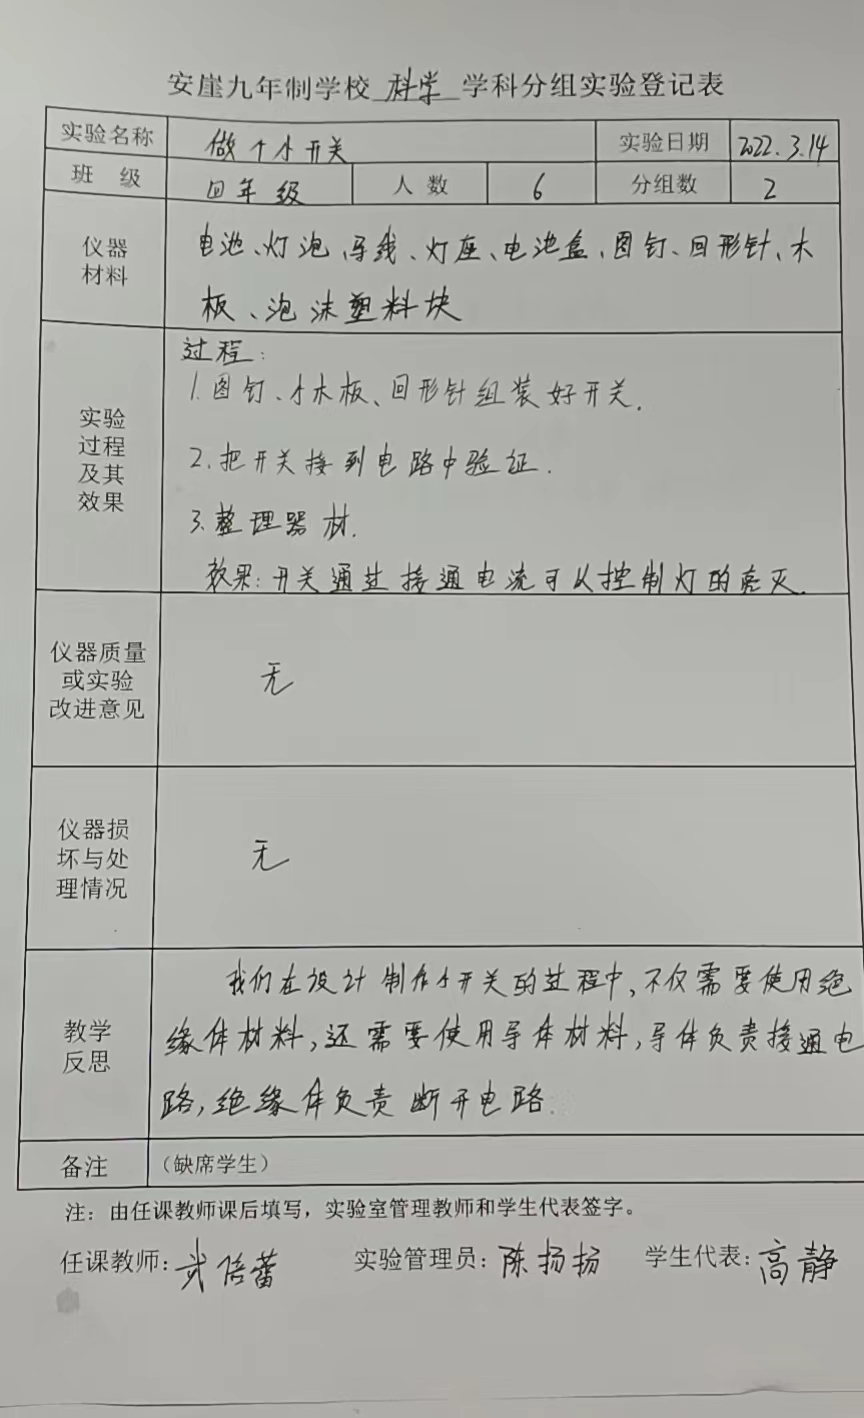 安崖九年制学校 科学 学科分组实验登记表
实验名称 做个小开关 实验日期 2022.3.14
班 级 四年级 人数 6 分组数 2
仪器
材料
电池、灯泡、导线、灯座、电池盒、图钉、回形针、木
板、泡沫塑料块
实验
过程
及其
效果
过程:
1.图钉、小木板、回形针组装好开关.
2.把开关接到电路中验证.
3.整理器材.
效果:开关通过接通电流可以控制灯的亮灭.
仪器质量
或实验
改进意见
无
仪器损
坏与处
理情况
无
教学
反思
我们在设计制作小开关的过程中,不仅需要使用绝
缘体材料,还需要使用导体材料,导体负责接通电
路,绝缘体负责断开电路.
备注 (缺席学生)
注:由任课教师课后填写,实验室管理教师和学生代表签字。
任课教师:武倍蕾 实验管理员:陈扬扬 学生代表:高静